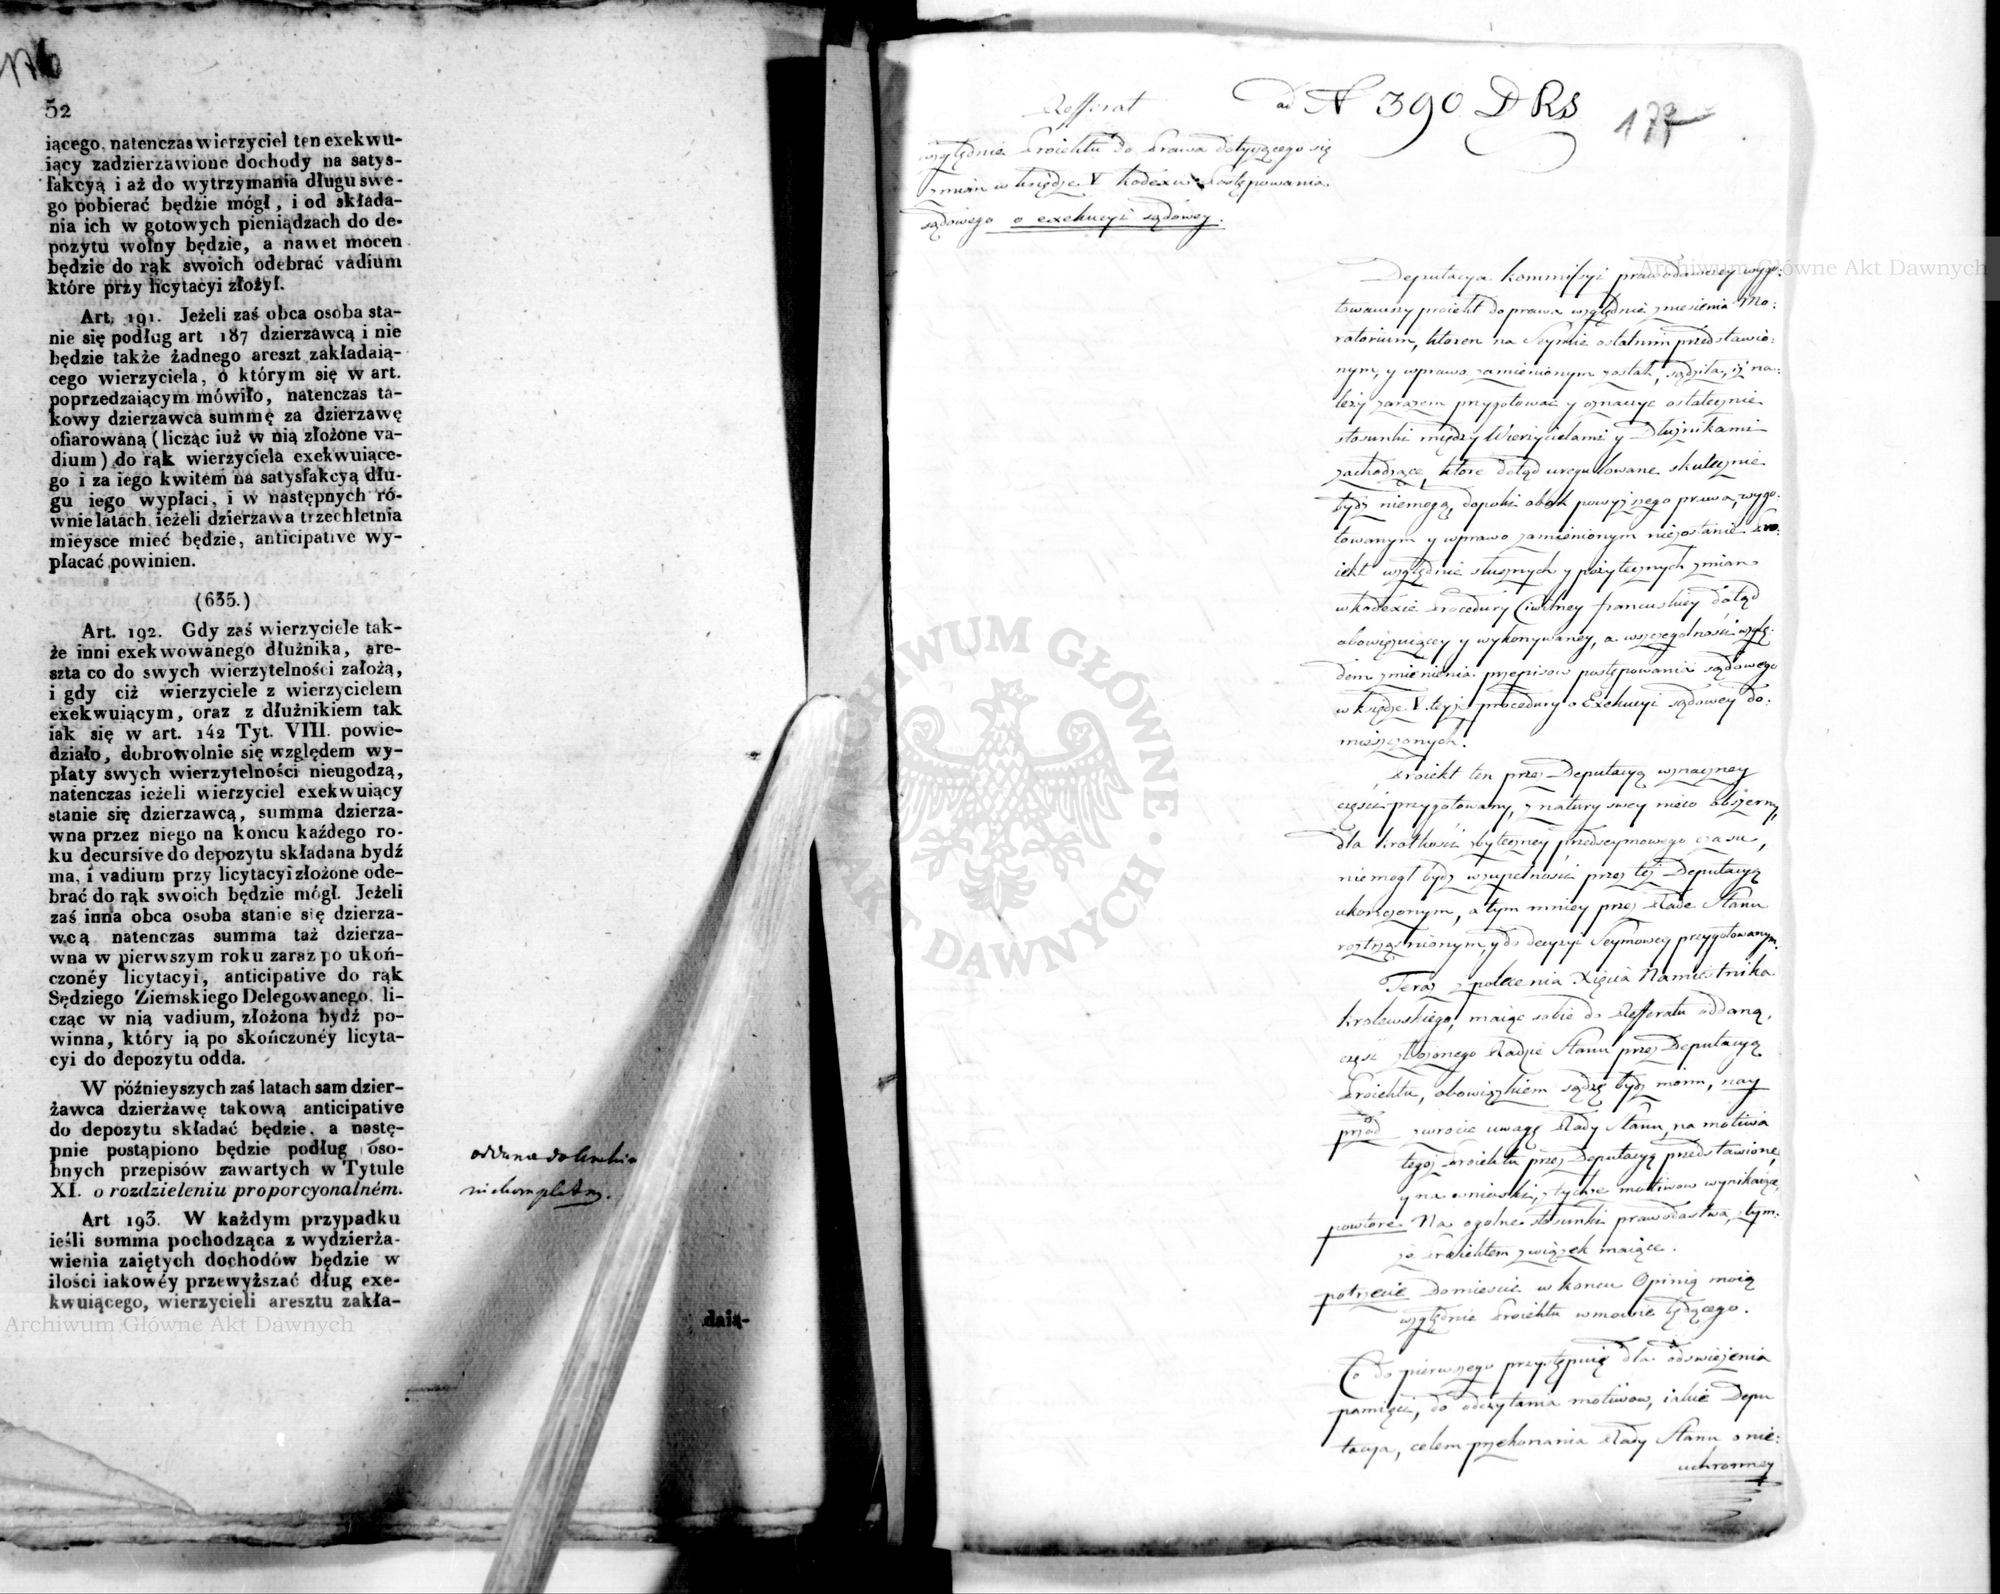 52
iącego, natenczas wierzyciel ten exekwu-
iący zadzierzawione dochody na satys-
fakcyą i aż do wytrzymania długu swe-
go pobierać będzie mógł, i od składa-
nia ich w gotowych pieniądzach do de-
pozytu wolny będzie, a nawet mocen
będzie do rąk swoich odebrać vadium
które przy licytacyi złożył.
Art. 191. Jeżeli zaś obca osoba sta-
nie się podług art 187 dzierzawcą i nie
będzie także żadnego areszt zakładaią-
cego wierzyciela, o którym się w art.
poprzedzaiącym mówiło, natenczas ta-
kowy dzierzawca summę za dzierzawę
ofiarowaną (licząc iuż w nią złożone va-
dium) do rąk wierzyciela exekwuiące-
go i za iego kwitem na satysfakcyą dłu-
gu iego wypłaci, i w następnych ró-
wnie latach, ieżeli dzierzawa trzechletnia
mieysce mieć będzie, anticipative wy-
płacać powinien.
(635.)
Art. 192. Gdy zaś wierzyciele tak-
że inni exekwowanego dłużnika, are-
szta co do swych wierzytelności założą,
i gdy ciż wierzyciele z wierzycielem
exekwuiącym, oraz z dłużnikiem tak
iak się w art. 142 Tyt. VIII. powie-
działo, dobrowolnie się względem wy-
płaty swych wierzytelności nieugodzą,
natenczas ieżeli wierzyciel exekwuiący
stanie się dzierzawcą, summa dzierza-
wna przez niego na końcu każdego ro-
ku decursive do depozytu składana bydź
ma, i vadium przy licytacyi złożone ode-
brać do rąk swoich będzie mógł. Jeżeli
zaś inna obca osoba stanie się dzierza-
wcą natenczas summa taż dzierza-
wna w pierwszym roku zaraz po ukoń-
czonéy licytacyi, anticipative do rąk
Sędziego Ziemskiego Delegowanego, li-
cząc w nią vadium, złożona bydź po-
winna, który ią po skończonéy licyta-
cyi do depozytu odda.
W późnieyszych zaś latach sam dzier-
żawca dzierżawę takową anticipative
do depozytu składać będzie, a nastę-
pnie postąpiono będzie podług oso-
bnych przepisów zawartych w Tytule
XI. o rozdzieleniu proporcyonalném.
Art 193. W każdym przypadku
ieśli summa pochodząca z wydzierża-
wienia zaiętych dochodów będzie w
ilości iakowéy przewyższać dług exe-
kwuiącego, wierzycieli aresztu zakła-
daią-
niekompletny.
ad N 390 D R S
177
Refferat
względnie Proiektu do Prawa dotyczącego się
zmian w księdze V kodexu Postępowania
sądowego o exekucyi sądowey.
Deputacya kommissyi prawodawczey wygo:
towawszy proiekt do prawa względnie zniesienia Mo:
ratorium, ktoren na Seymie ostatnim przedstawio:
nym, y w prawo zamienionym został, sądziła, iż na:
leży zarazem przygotować y oznaczyć ostatecznie
stosunki między Wierzycielami y Dłużnikami
zachodzące, ktore dotąd uregulowane skutecznie
bydz niemogą, dopoki obok powyższego prawa, wygo:
towanym y w prawo zamienionym niezostanie Pro:
iekt względnie słusznych y pożytecznych zmian
w kodexie Procedury Cywilney francuskiey dotąd
obowięzuiącey y wykonywaney, a w szczegolności wzglę:
dem zmienienia przepisow postępowania sądowego
w księdze V teyże procedury o Exekucyi sądowey do:
mieszczonych.
Proiekt ten przez Deputacyą w znaczney
części przygotowany, z natury swey nieco obszerny,
dla krotkości zbyteczney przedseymowego czasu,
niemogł bydz w zupełności przez tęż Deputacyą
ukończonym, a tym mniey przez Radę Stanu
roztrząśnionym, y do decyzyi Seymowey przygotowanym.
Teraz z polecenia Xięcia Namiestnika
Krolewskiego, maiąc sobie do Refferatu oddaną,
część złożonego Radzie Stanu przez Deputacyą
Proiektu, obowiązkiem sądzę bydz moim, nay
przod zwrocić uwagę Rady Stanu, na motiwa
tegoż Proiektu przez Deputacyą przedstawione,
y na wnioski, z tychże motiwow wynikaiące,
powtore Na ogolne stosunki prawodastwa, z tym:
że Proiektem związek maiące.
potrzecie Domieścić w koncu Opinią moią
względnie Proiektu w mowie będącego.
Co do pierwszego przystępuię dla odswieżenia
pamięci, do odczytania motiwow, iakie Depu
tacya, celem przekonania Rady Stanu o nie:
uchronney
Archiwum Główne Akt Dawnych
Archiwum Główne Akt Dawnych
ARCHIWUM GŁÓWNE AKT DAWNYCH